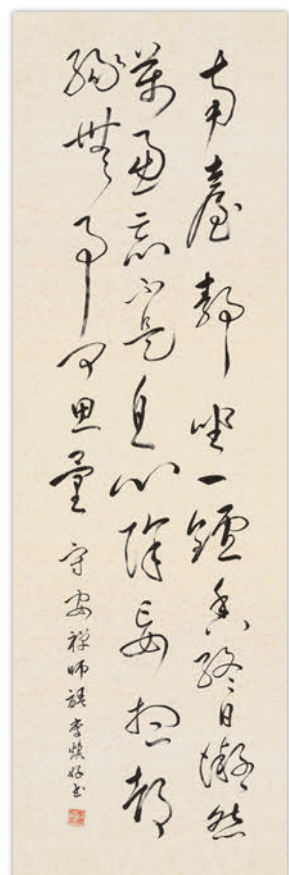 南臺靜坐一鑪香終日凝然
萬慮忘不是息心除妄想都
緣無事可思量 守安禪師語 李 書